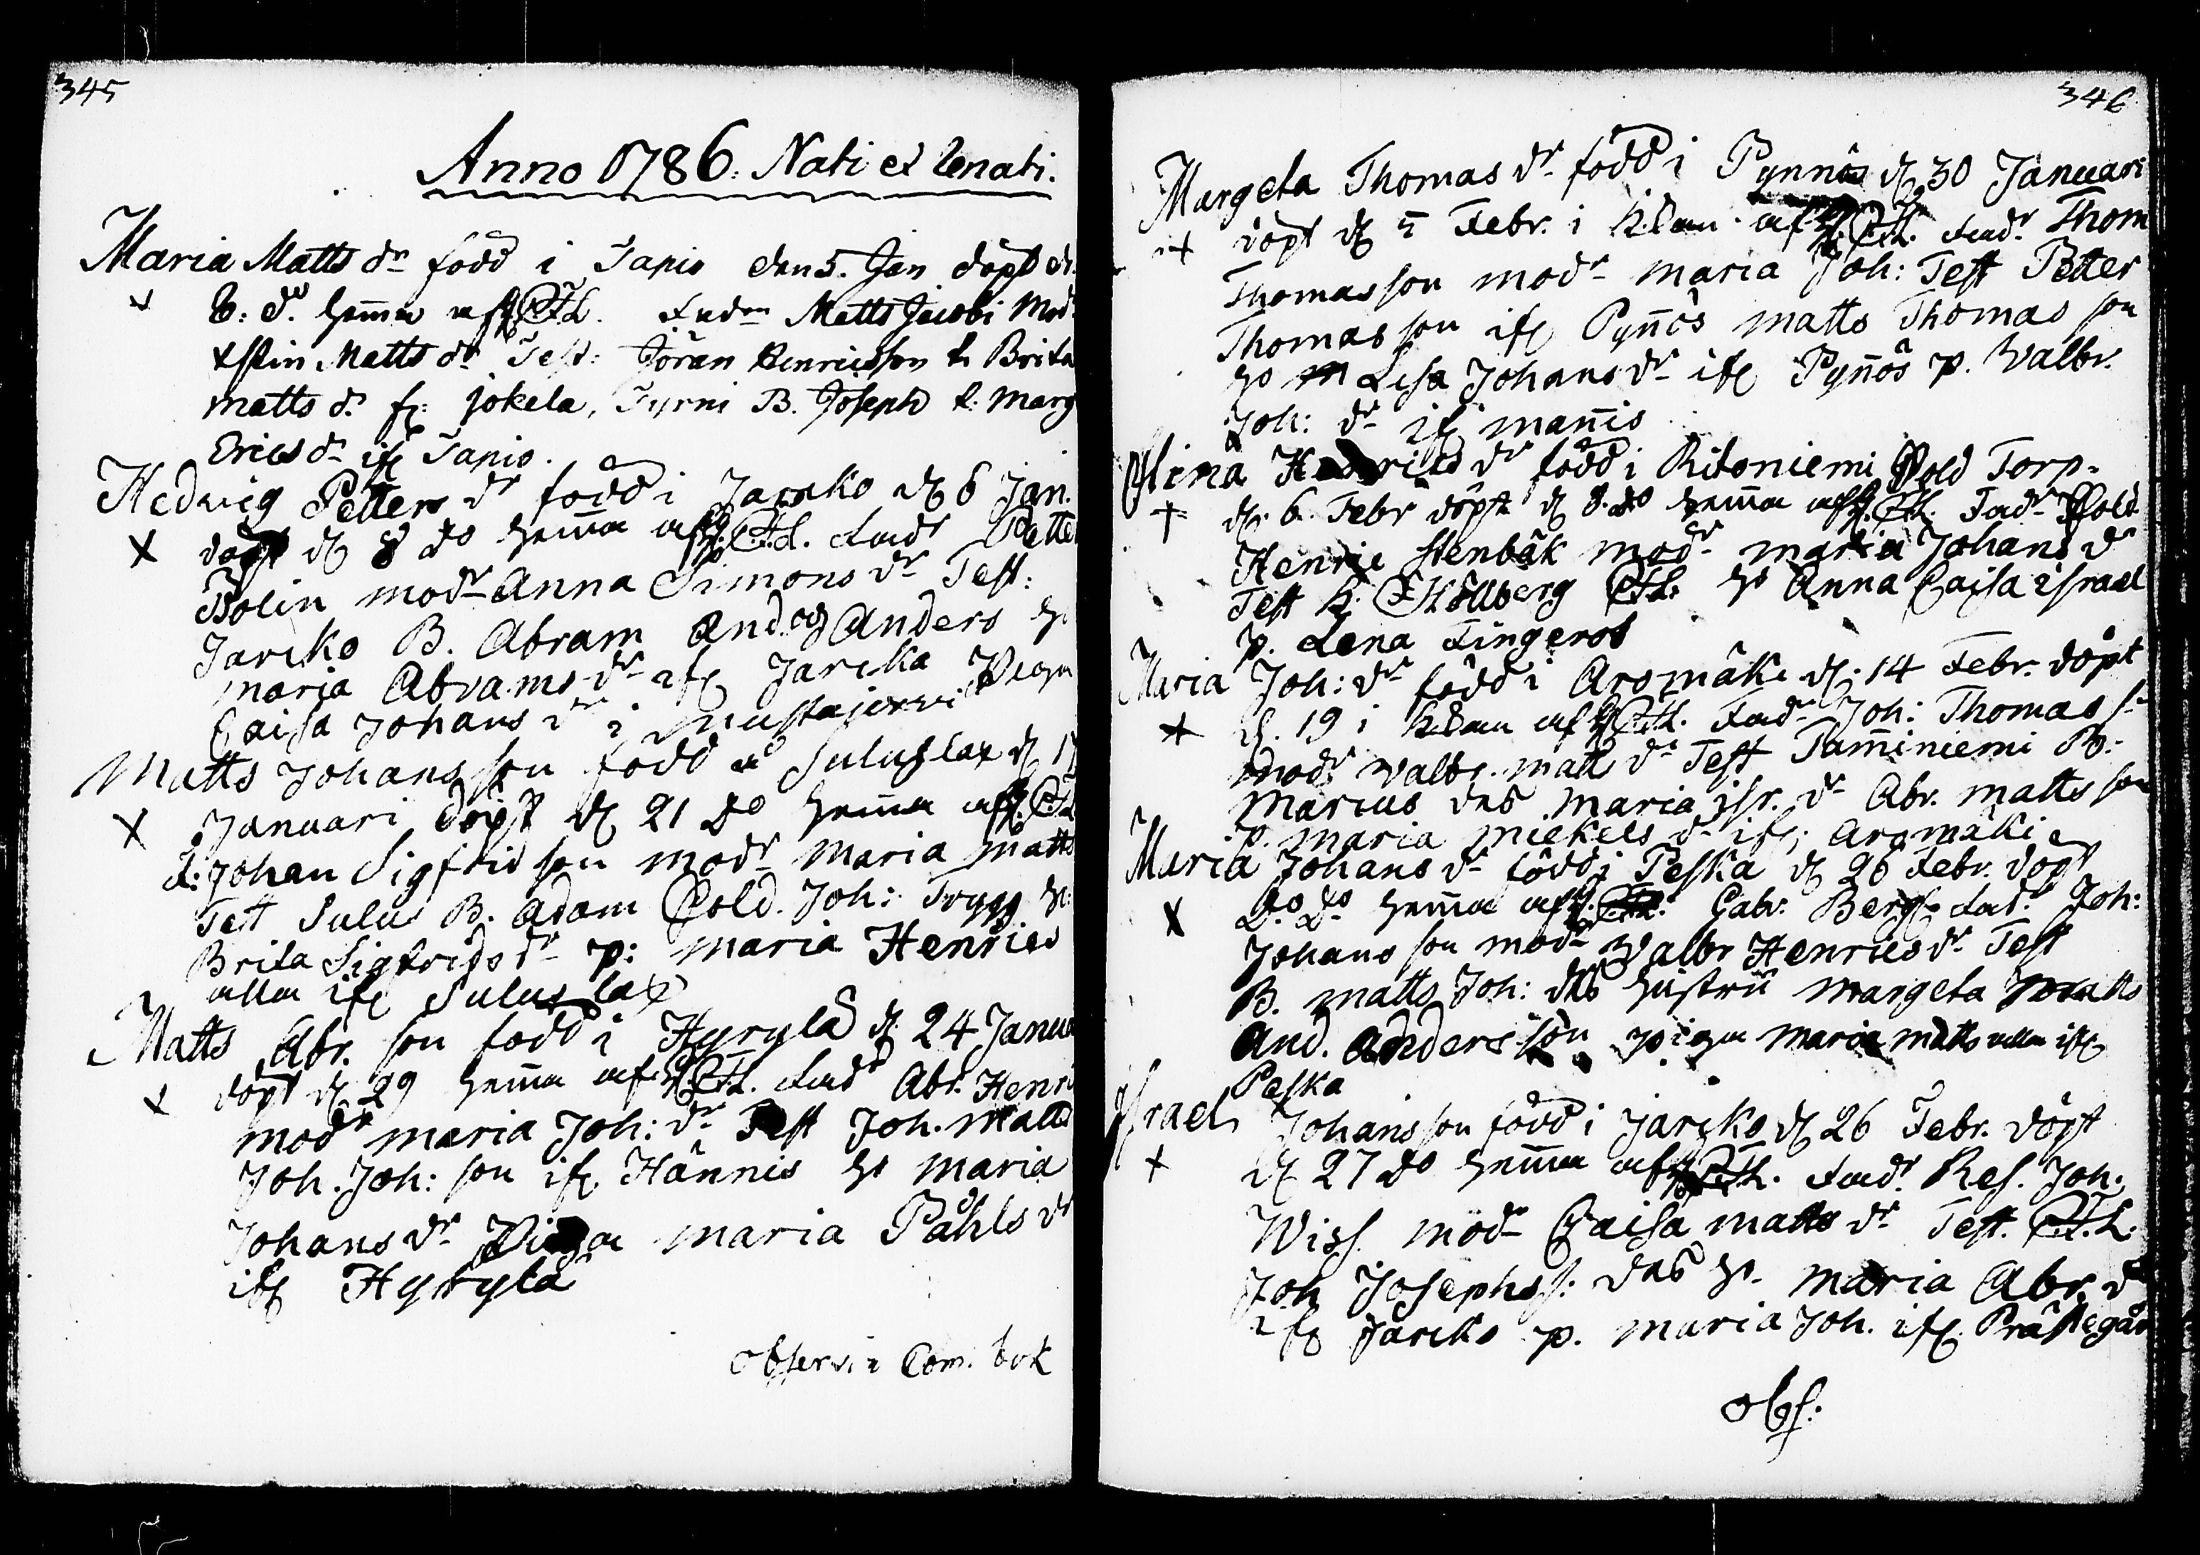 345
Anno 1786. Nati et Renati.
Maria Matts dr född i Tapio den 5. Jan döpt d.
8. do hemma af H. C.H. Fadn Matts Jacobi Mod.
Stin Matts dr Test: Jöran Henricsson h. Brita
Matts dr fr: Jokela, Tyrni B. Joseph h: Marg
Erics dr ifr Tapio.
Hedwig Petters dr född i Jarcko d 6 Jan.
döpt d 8 do hemma af H. C.H. Fadr Petter
Bolin modr Anna Simons dr Test:
Jarcko B. Abram And. och Anders h.
Maria Abrams dr ifr Jarcka Pigan
Caisa Johans dr i Mustajerwi
Matts Johans son född i Sulus lax d 17
Januari döpt d 21 do hemma af H. C.H.
F: Johan Sigfrid son modr Maria Matts
Test Sulus B. Adam Sold. Joh: Trygg h:
Brita Sigfrids dr p: Maria Henrics
alla ifr Sulus lax
Matts Abr. son född i Hyrylä d 24 Janua
döpt d 29 hemma af H. C.H. Fadr Abr. Henri
modr Maria Joh: dr Test Joh. Matts
Joh. Joh: son ifr Hännis h Maria
Johans dr Pigan Maria Påhls dr
ifr Hyrylä
observ: i Com. bok
346
Margeta Thomas dr född i Pynnös d 30 Januari
döpt d 5 Febr. i Kyrkan af H. C.H. Fadr Thom
Thomas son modr Maria Joh: Test Petter
Thomas son ifr Pynnös Matts Thomas son
h Lisa Johans dr ifr Pynnös p. Walbr.
Joh: dr ifr Mannis
Stina Henrics dr född i Ritoniemi Sold Torp.
d. 6. Febr döpt d 8. do hemma af H. C.H. Fadr Sold
Henric Stenbäk modr Maria Johans dr
Test H. Hölberg C.H. h Anna Caisa Israel
p. Lena Fingeros
Maria Joh: dr född i Aromäki d. 14 Febr. döpt
d. 19 i Kyrkan af H. C.H. Fadr Joh: Thomas s.
Modr Walbr. Matts dr Test Tamminiemi B.
Marcus des Maria Isr. dr Abr. Matts son
p. Maria Mickels dr ifr; Aromäki
Maria Johans dr född i Peska d 26 Febr. döpt
do do hemma af H. Gabr. Bergh Fad. Joh:
Johans son modr Walbr Henrics dr Test
B. Matts Joh: des hustru Margeta Matts
And. Anders son pigan Maria Matts alla ifr
Peska
Israel Johans son född i Jarcko d 26 Febr. döpt
d 27 do hemma af H. C.H. Fadr Ref. Joh.
Wiss. modr Caisa Matts dr Test. C.H.
Joh Josephs s: des h. Maria Abr. dr
ifr Jarcko p. Maria Joh. ifr Prästegår
obs: